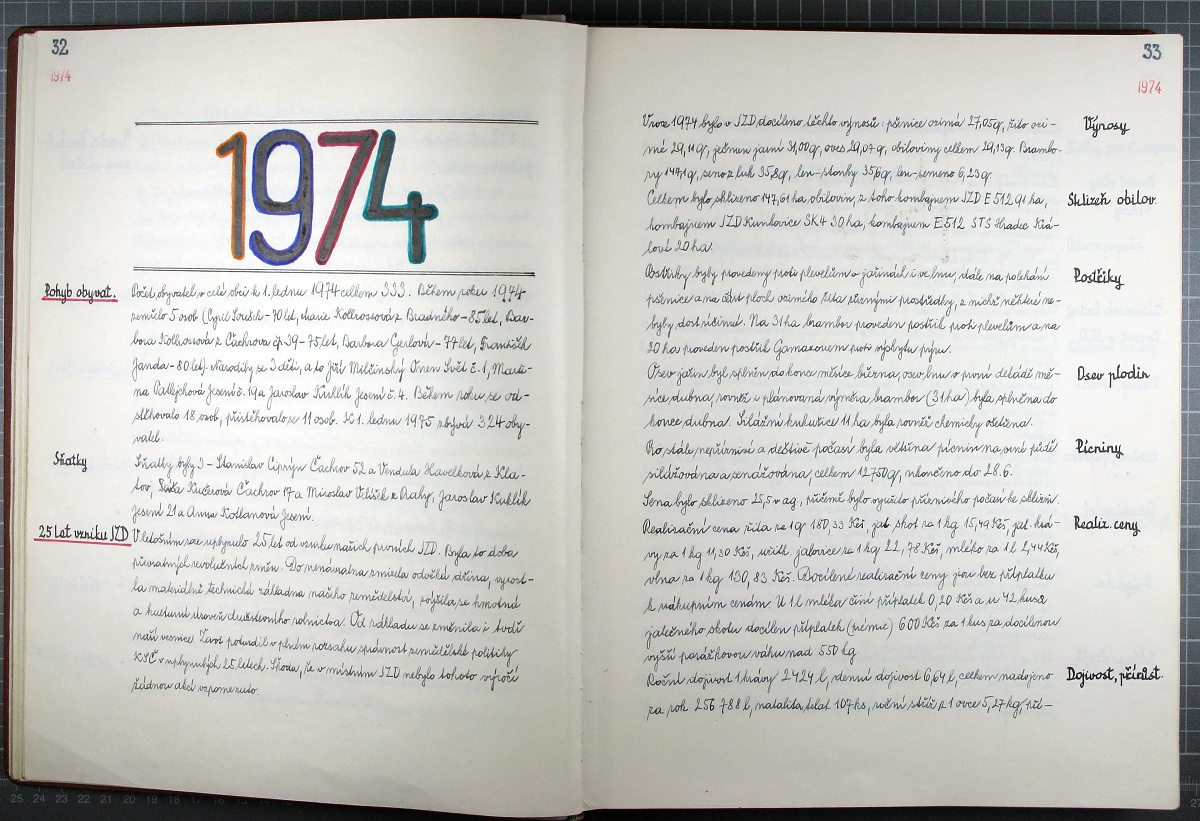 32
1974
1974
Pohyb obyvat.
Počet obyvatel v celé obci k 1. lednu 1974 celkem 333. Během roku 1974
zemřelo 5 osob (Cyril - 70 let, Marie Kollrossová z Bradného - 85 let, Bar-
bora Kollrossová z Čachrova čp 39 - 75 let, Barbora Gerlová - 77 let, František
Janda - 80 let). Narodily se 3 děti, a to Jiří Onen Svět č. 1, Marti-
na Jesení č. 19 a Jaroslav Kuklík Jesení č. 4. Během roku se od-
stěhovalo 18 osob, přistěhovalo se 11 osob. K 1. lednu 1975 zbývá 324 oby-
vatel.
Sňatky
Sňatky byly 3 - Stanislav Ciprýn Čachrov 52 a Vendula Havelková z Kla-
tov, Kučerová Čachrov 17 a Miroslav Velíšek z Prahy, Jaroslav Kuklík
Jesení 21 a Anna Kotlanová Jesení.
25 let vzniku JZD
V letošním roce uplynulo 25 let od vzniku našich prvních JZD. Byla to doba
převratných revolučních změn. Do nenávratna zmizela odvěká dřina, vyrost-
la materiálně technická základna našeho zemědělství, zvýšila se hmotná
a kulturní úroveň družstevního rolnictva. Od základu se změnila i tvář
naší vesnice. Život potvrdil v plném rozsahu správnost zemědělské politiky
KSČ v uplynulých 25 letech. Škoda, že v místním JZD nebylo tohoto výročí
žádnou akcí vzpomenuto.
33
1974
Výnosy
V roce 1974 bylo v JZD docíleno těchto výnosů: pšenice ozimá 27,05 q, žito ozi-
mé 29,11 q, ječmen jarní 31,00 q, oves 29,07 q, obiloviny celkem 29,13 q. Brambo-
ry 147,1 q, seno z luk 35,8 q, len-stonky 35,6 q, len-semeno 6,23 q.
Sklizeň obilov.
Celkem bylo sklizeno 147,61 ha obilovin, z toho kombajnem JZD E 512 91 ha,
kombajnem JZD Kunkovice SK4 30 ha, kombajnem E 512 STS Hradec Krá-
lové 20 ha.
Postřiky
Postřiky byly provedeny proti plevelům v jařinách i ve lnu, dále na poléhání
pšenice a na část ploch ozimého žita různými prostředky, z nichž některé ne-
byly dost účinné. Na 31 ha brambor proveden postřik proti plevelům a na
20 ha proveden postřik Gamaxonem proti výskytu pýru.
Osev plodin
Osev jařin byl splněn do konce měsíce března, osev lnu v první dekádě mě-
síce dubna, rovněž i plánovaná výměra brambor (31 ha) byla splněna do
konce dubna. Silážní kukuřice 11 ha byla rovněž chemicky ošetřena.
Pícniny
Pro stále nepříznivé a deštivé počasí byla většina pícnin na orné půdě
silážována a senážována, celkem 12750 q, ukončeno do 28.6.
Sena bylo sklizeno 25,5 v ag, přičemž bylo využito příznivého počasí ke sklizni.
Realiz. ceny
Realizační cena žita za 1 q 187,33 Kčs, jat. skot za 1 kg 15,49 Kčs, jat. krá-
vy za 1 kg 11,30 Kčs, jalovice za 1 kg 22,78 Kčs, mléko za 1 l 2,44 Kčs,
vlna za 1 kg 130,83 Kčs. Docílené realizační ceny jsou bez příplatku
k nákupním cenám. U 1 l mléka činí příplatek 0,20 Kčs a u 42 kusů
jatečného skotu docílen příplatek (prémie) 600 Kčs za 1 kus za docílenou
vyšší porážkovou váhu nad 550 kg.
Dojivost, přírůst.
Roční dojivost 1 krávy 2424 l, denní dojivost 6,64 l, celkem nadojeno
za rok 256 788 l, natalita telat 107 ks, roční stříž z 1 ovce 5,27 kg, pří-